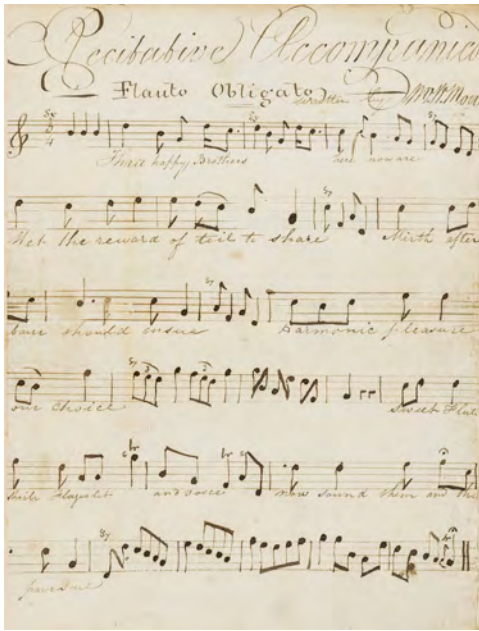 Recitative Accompanied
Flauto Obligato written by
Three happy Brothers here now are
Met the reward of toil to share Mirth after
should ensue Harmonic pleasure
our choice Sweet Flute
Flageolet and voice now sound them and the